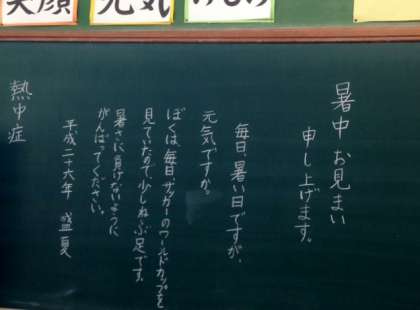 笑顔
元気
暑中お見まい
申し上げます。
毎日、暑い日ですが、
元気ですか。
ぼくは、毎日サッカーのワールドカップを
見ていたので少しねぶ足です。
暑さに負けないように
がんばってください。
平成二十六年 盛夏
熱中症